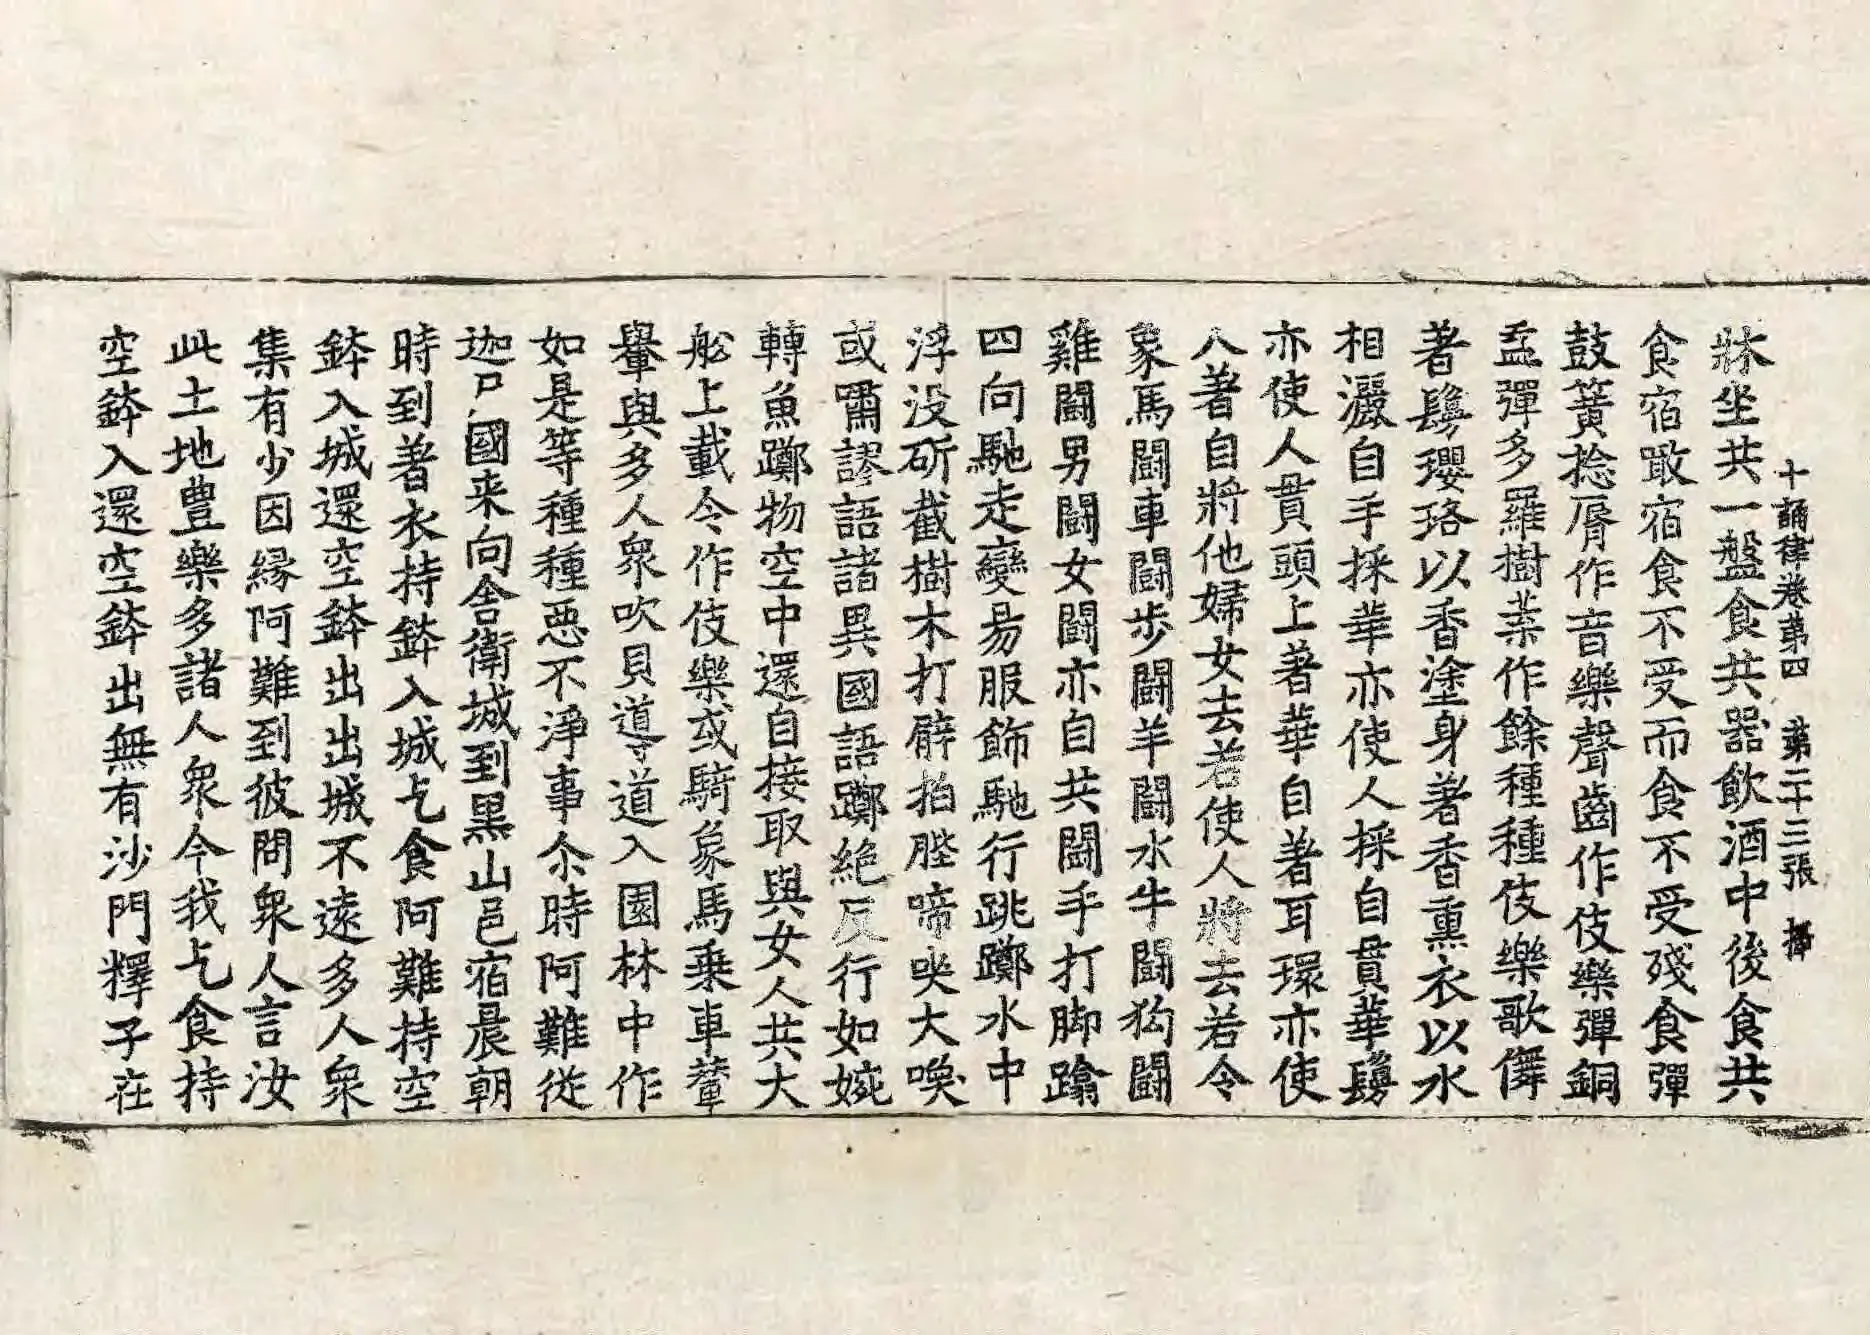 十誦律卷第四　第二十三張　揮
牀坐共一盤食共器飮酒中後食共
食宿噉宿食不受而食不受殘食彈
鼓簧捻脣作音樂聲齒作伎樂彈銅
盂彈多羅樹葉作餘種種伎樂歌儛
著鬘瓔珞以香塗身著香熏衣以水
相灑自手採華亦使人採自貫華鬘
亦使人貫頭上著華自著耳環亦使
人著自將他婦女去若使人將去若令
象馬鬪車鬪步鬪羊鬪水牛鬪狗鬪
雞鬪男鬪女鬪亦自共鬪手打脚蹹
四向馳走變易服飾馳行跳躑水中
浮没斫截樹木打臂拍䏶啼哭大喚
或嘯謬語諸異國語躑絶反行如婉
轉魚躑物空中還自接取與女人共大
舩上載令作伎樂或騎象馬乗車輦
轝與多人衆吹貝導道入園林中作
如是等種種惡不淨事尒時阿難從
迦尸國来向舍衛城到黑山邑宿晨朝
時到著衣持鉢入城乞食阿難持空
鉢入城還空鉢出出城不遠多人衆
集有少因緣阿難到彼問衆人言汝
此土地豊樂多諸人衆今我乞食持
空鉢入還空鉢出無有沙門釋子在